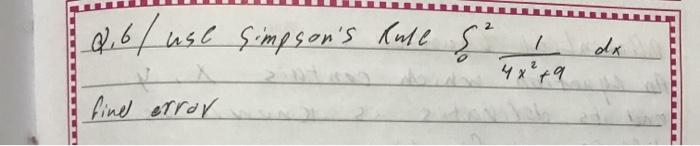 Q.6/ use Simpson's Rule ∫₀² 1/(4x²+9) dx
find error